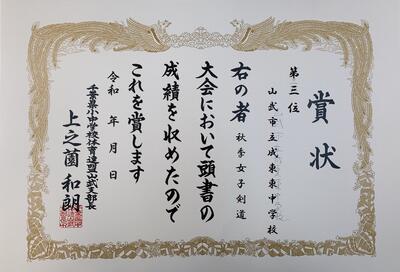 賞状
第三位
山武市立成東東中学校
右の者 秋季女子剣道
大会において頭書の
成績を収めたので
これを賞します
令和 年 月 日
千葉県小中学校体育連盟山武支部長
上之薗 和朗